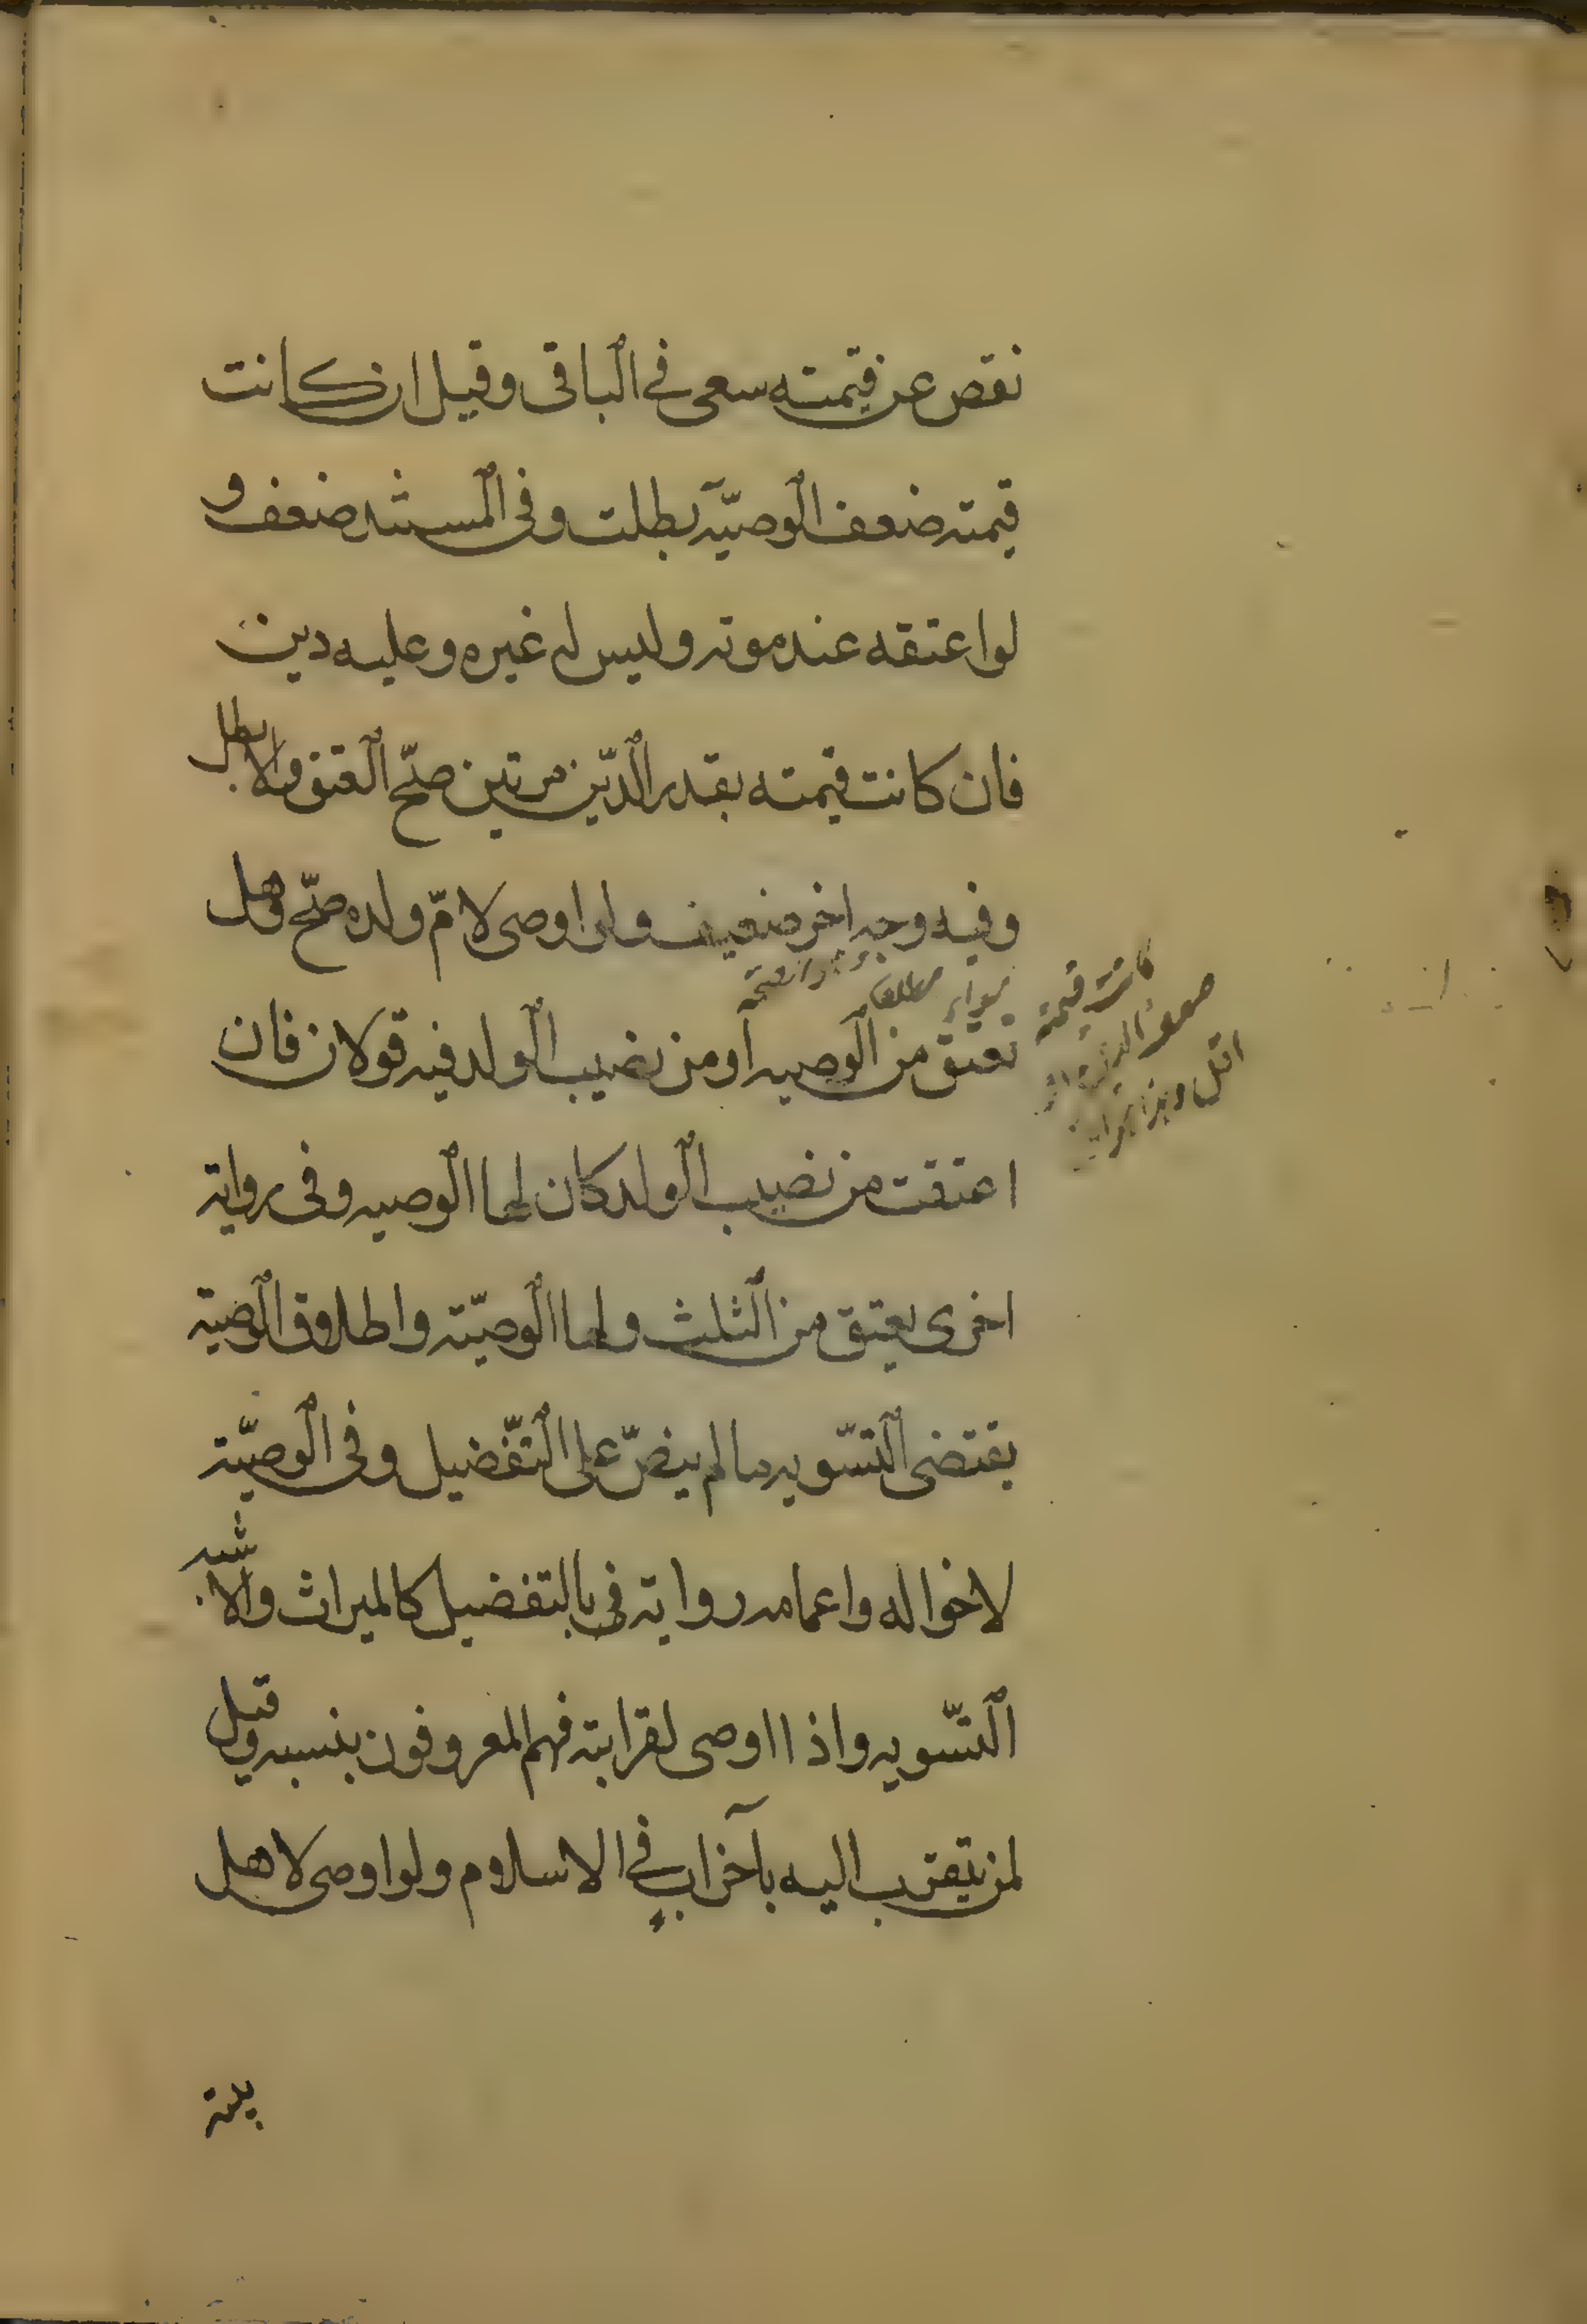 نقص عن قيمته سعى في الباقى وقيل ان كانت
قيمته ضعف الوصيّة بطلت وفى المستند ضعف و
لو اعتقه عند موته وليس له غيره وعليه دين
فان كانت قيمته بقدر الدّين مرتين صحّ العتق والا بطل
وفيه وجه اخر ضعيف ولو اوصى لامّ ولده صحّ وهل
تعتق من الوصيه او من نصيب الولد فيه قولان فان
اعتقت من نصيب الولد كان لها الوصيه وفى رواية
اخرى يعتق من الثلث ولها الوصيّة واطلاق الوصية
يقتضى التسّويه ما لم ينصّ على التفّضيل وفى الوصيّة
لاخواله واعمامه رواية فى بالتفضيل كالميراث والاشبه
التسّويه واذا اوصى لقرابته فهم المعروفون بنسبه وقيل
لمن يتقرب اليه بآخر اب في الاسلام ولو اوصى لاهل
كانت قيمة
ضعف الدين او
اقل
بيته